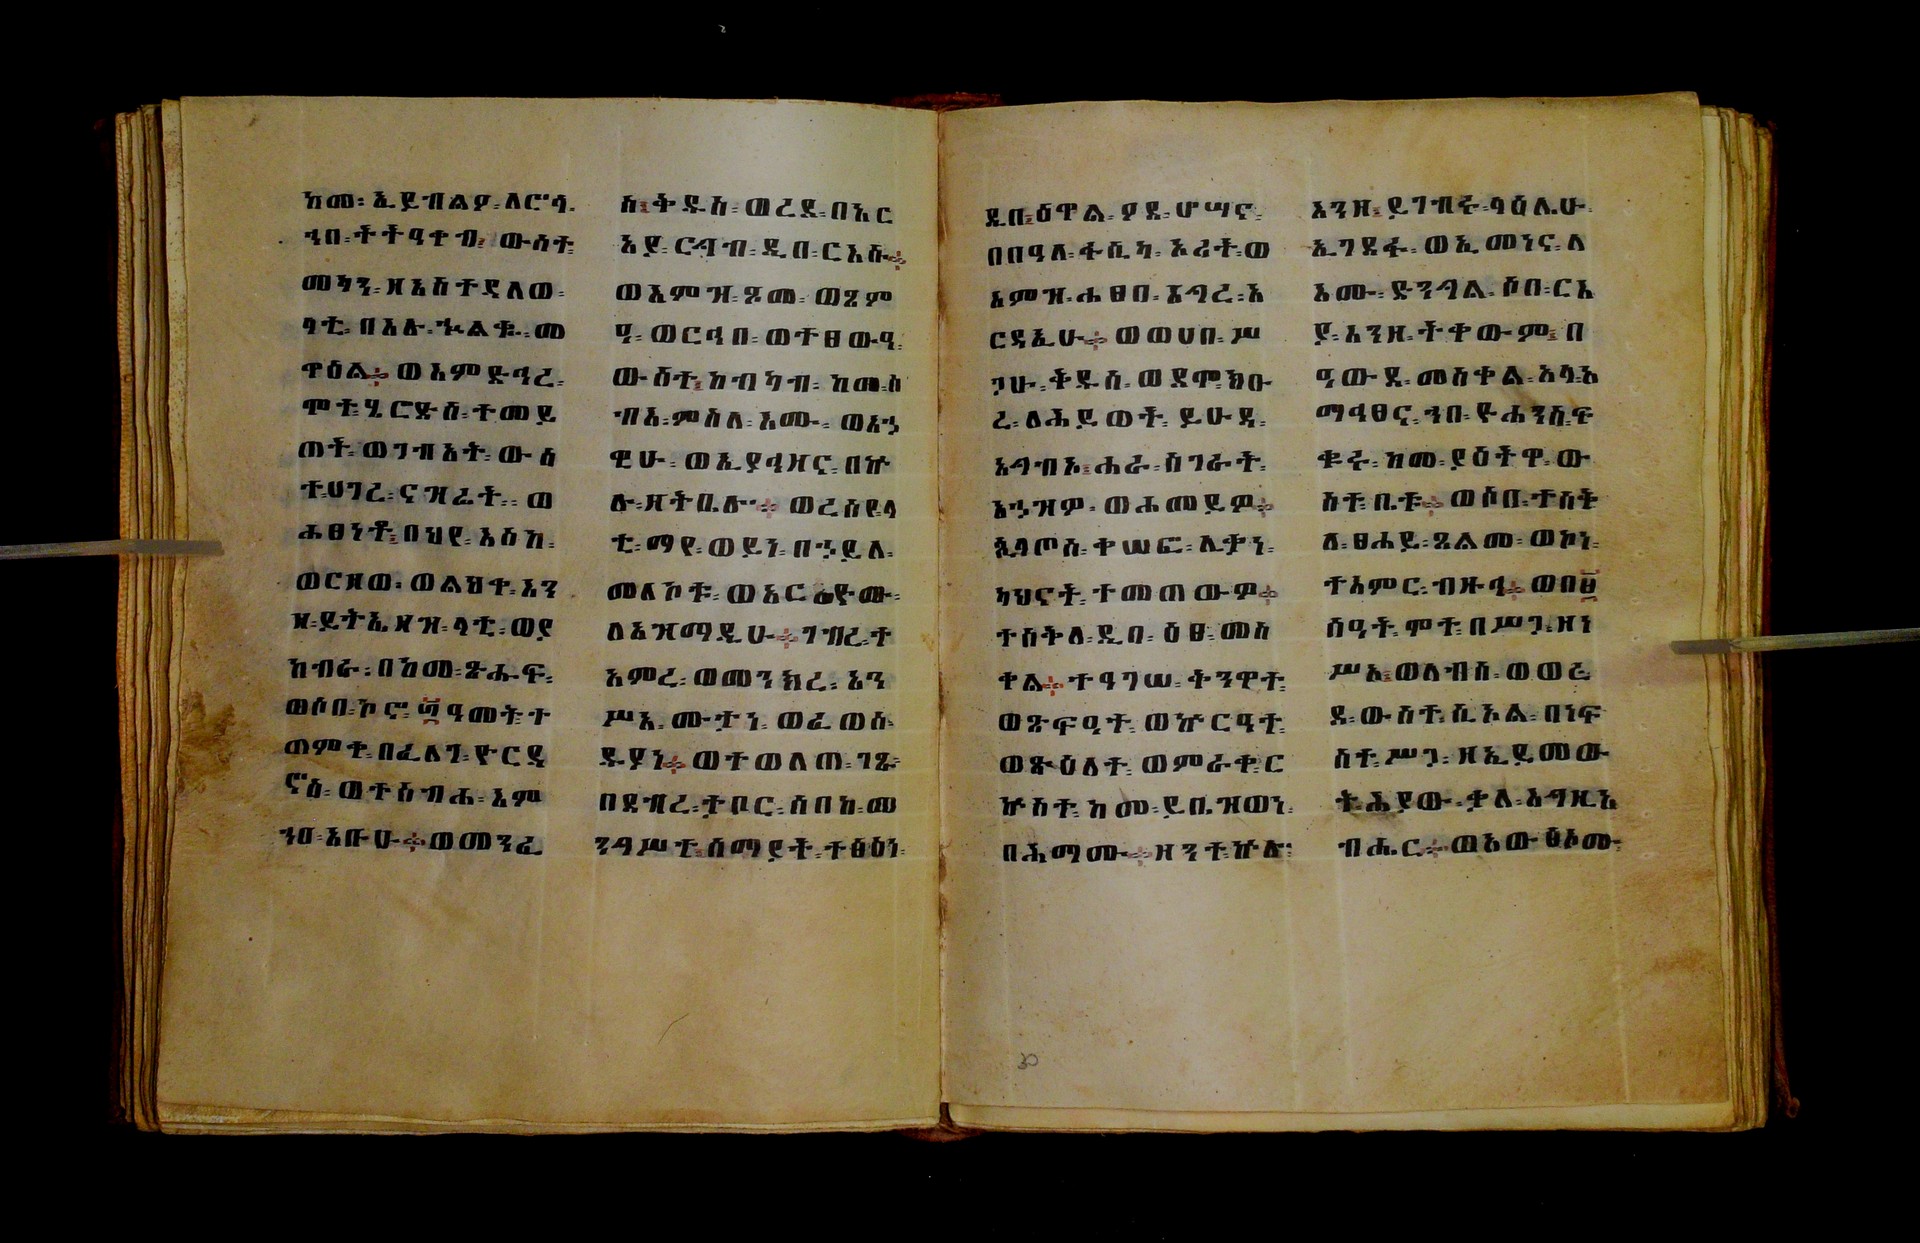 ከመ፡ ኢይብልዎ፡ ለርኅ
ኅበ፡ ትትዓቀብ፡ ውስተ፡
መካን፡ ዘአስተዳለወ፡
ላቲ፡ በእሉ፡ ኈልቁ፡ መ
ዋዕል፨ ወእምድኅረ፡
ሞተ፡ ሄሮድስ፡ ተመይ
ጠት፡ ወገብአት፡ ውስ
ተ፡ ሀገረ፡ ናዝሬት፡ ወ
ሐፀነቶ፡ በህየ፡ እስከ፡
ወርዘወ፡ ወልህቀ፡ እን
ዘ፡ ይትኤዘዝ፡ ላቲ፡ ወያ
ከብራ፡ በከመ፡ ጽሑፍ፡
ወሶበ፡ ኮኖ፡ ፴ ዓመት፡ ተ
ጠምቀ፡ በፈለገ፡ ዮርዳ
ኖስ፡ ወተሰብሐ፡ እም
ኀበ፡ አቡሁ፨ ወመንፈ
ስ፡ ቅዱስ፡ ወረደ፡ በአር
አያ፡ ርግብ፡ ዲበ፡ ርእሱ፨
ወእምዝ፡ ጾመ፡ ወጸም
ዓ፡ ወርኅበ፡ ወተፀውዓ፡
ውስተ፡ ከብካብ፡ ከመ፡ ሰ
ብእ፡ ምስለ፡ እሙ፡ ወአኃ
ዊሁ፡ ወኢያኅዘኖ፡ በኵ
ሉ፡ ዘትቤሉ፨ ወረሰየ፡ ላ
ቲ፡ ማየ፡ ወይነ፡ በኃይለ፡
መለኮቱ፡ ወአርድዮሙ፡
ለአዝማዲሁ፨ ገብረ፡ ተ
አምረ፡ ወመንክረ፡ እን
ሥአ፡ ሙታነ፡ ወፈወሰ፡
ዱያነ፨ ወተወለጠ፡ ገጹ፡
በደብረ፡ ታቦር፡ ሰበከ፡ መ
ንግሥተ፡ ሰማያት፡ ተፅዕነ፡
ዲበ፡ ዕዋል፡ ያደ፡ ሆሣና፡
በበዓለ፡ ፋሲካ፡ ኦሪት፡ ወ
እምዝ፡ ሐፀበ፡ እግረ፡ አ
ርዳኢሁ፨ ወወሀበ፡ ሥ
ጋሁ፡ ቅዱሰ፡ ወደሞ፡ ክቡ
ረ፡ ለሕይወት፡ ይሁዳ፡
አግብኦ፡ ሐራ፡ ሰገራት፡
አኃዝዎ፡ ወሐመይዎ፨
ጲላጦስ፡ ቀሠፎ፡ ሊቃነ፡
ካህናት፡ ተመጠውዎ፨
ተሰቅለ፡ ዲበ፡ ዕፀ፡ መስ
ቀል፨ ተዓገሠ፡ ቅንዋተ፡
ወጽፍዓተ፡ ወኵርዓተ፡
ወጽዕለተ፡ ወምራቀ፡ ር
ኵስት፡ ከመ፡ ይቤዝወነ፡
በሕማሙ፨ ዘንተ፡ ኵሎ፡
እንዘ፡ ይገብሩ፡ ላዕሌሁ፡
ኢገደፋ፡ ወኢመነና፡ ለ
እሙ፡ ድንግል፡ ሶበ፡ ርእ
ያ፡ እንዘ፡ ትቀውም፡ በ
ዓውደ፡ መስቀል፡ አላ፡ አ
ማኅፀና፡ ኀበ፡ ዮሐንስ፡ ፍ
ቁሩ፡ ከመ፡ ያዕትዋ፡ ው
ስተ፡ ቤቱ፨ ወሶበ፡ ተሰቅ
ለ፡ ፀሐይ፡ ጸልመ፡ ወኮነ፡
ተአምር፡ ብዙኅ፨ ወበ፱
ሰዓት፡ ሞተ፡ በሥጋ፡ ዘነ
ሥአ፡ ወለብሰ፡ ወወረ
ደ፡ ውስተ፡ ሲኦል፡ በነፍ
ስተ፡ ሥጋ፡ ዘኢይመው
ት፡ ሕያው፡ ቃለ፡ እግዚአ
ብሔር፨ ወአውፅኦሙ፡
30